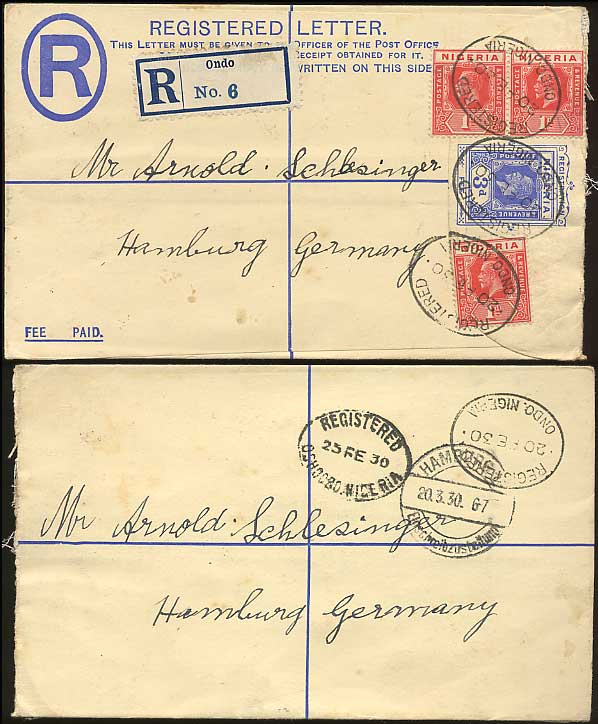 REGISTERED LETTER.
THIS LETTER MUST BE GIVEN TO OFFICER OF THE POST OFFICE
RECEIPT OBTAINED FOR IT.
WRITTEN ON THIS SIDE
R
R
Ondo
No. 6
NIGERIA
NIGERIA
POSTAGE & REVENUE
REGISTERED
ONDO. NIGERIA
Mr Arnold. Schlesinger
REGISTRATION
NIGERIA
POSTAGE & REVENUE
3d
REGISTERED
NIGERIA
Hamburg Germany
& REVENUE
REGISTERED
20 FE 30
ONDO. NIGERIA
FEE PAID.
REGISTERED
25 FE 30
OSHOGBO. NIGERIA
REGISTERED
20 FE 30
ONDO. NIGERIA
HAMBURG
20.3.30. 6-7
Mr Arnold. Schlesinger
Hamburg Germany